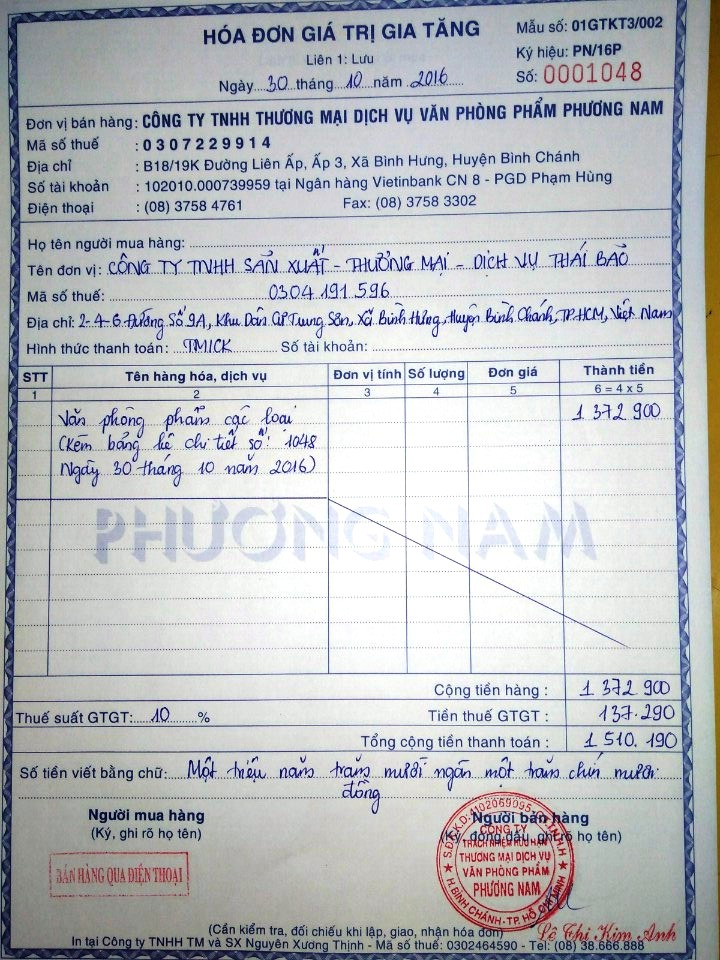 HÓA ĐƠN GIÁ TRỊ GIA TĂNG
Mẫu số: 01GTKT3/002
Liên 1: Lưu
Ký hiệu: PN/16P
Ngày 30 tháng 10 năm 2016
Số: 0001048
Đơn vị bán hàng: CÔNG TY TNHH THƯƠNG MẠI DỊCH VỤ VĂN PHÒNG PHẨM PHƯƠNG NAM
Mã số thuế : 0307229914
Địa chỉ : B18/19K Đường Liên Ấp, Ấp 3, Xã Bình Hưng, Huyện Bình Chánh
Số tài khoản : 102010.000739959 tại Ngân hàng Vietinbank CN 8 - PGD Phạm Hùng
Điện thoại : (08) 3758 4761 Fax: (08) 3758 3302
Họ tên người mua hàng:
Tên đơn vị: CÔNG TY TNHH SẢN XUẤT - THƯƠNG MẠI - DỊCH VỤ THÁI BẢO
Mã số thuế: 0304191596
Địa chỉ: 2-4-6 Đường Số 9A, Khu Dân Cư Trung Sơn, Xã Bình Hưng, Huyện Bình Chánh, TP.HCM, Việt Nam
Hình thức thanh toán: TM/CK Số tài khoản:
STT Tên hàng hóa, dịch vụ Đơn vị tính Số lượng Đơn giá Thành tiền
1 2 3 4 5 6 = 4 x 5
Văn phòng phẩm các loại 1 372 900
(Kèm bảng kê chi tiết số: 1048
Ngày 30 tháng 10 năm 2016)
PHƯƠNG NAM
Cộng tiền hàng : 1 372 900
Thuế suất GTGT: 10 % Tiền thuế GTGT : 137.290
Tổng cộng tiền thanh toán : 1 510.190
Số tiền viết bằng chữ: Một triệu năm trăm mười ngàn một trăm chín mươi
đồng
Người mua hàng
(Ký, ghi rõ họ tên)
Người bán hàng
(Ký, đóng dấu, ghi rõ họ tên)
BÁN HÀNG QUA ĐIỆN THOẠI
CÔNG TY
TRÁCH NHIỆM HỮU HẠN
THƯƠNG MẠI DỊCH VỤ
VĂN PHÒNG PHẨM
PHƯƠNG NAM
H. BÌNH CHÁNH - TP. HỒ CHÍ MINH
Lê Thị Kim Anh
(Cần kiểm tra, đối chiếu khi lập, giao, nhận hóa đơn)
In tại Công ty TNHH TM và SX Nguyên Xương Thịnh - Mã số thuế: 0302464590 - Tel: (08) 38.666.888